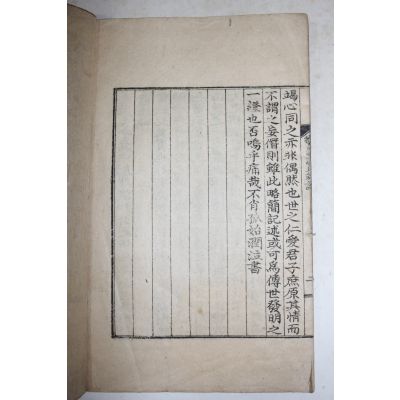 竭心同之亦非偶然也世之仁愛君子庶原其情而
不謂之妄僭則雖此略簡記述或可爲傳世發明之
一證也否嗚乎痛哉不肖孤始潤泣書